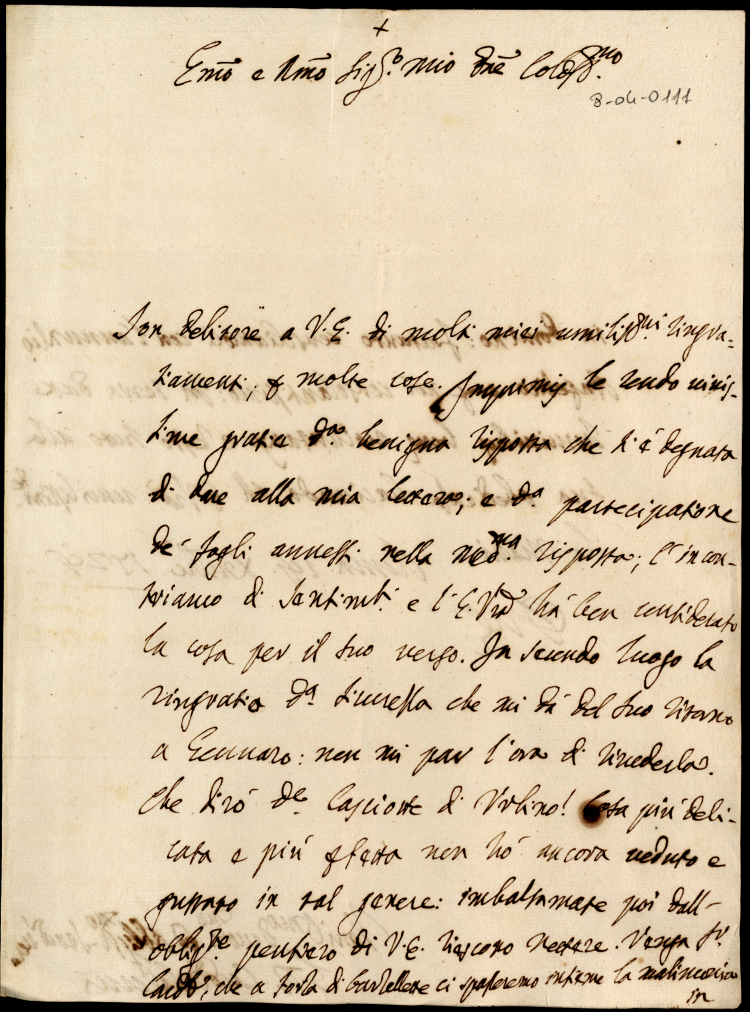 +
Emõ e Rmõ Sig.re mio Prñe Colmo
8-04-0111
Son debitore a V.E. di molti miei umilissmi ringra-
tiamenti, p molte cose. Inprimis le rendo vivis-
sime gratie della benigna risposta che si è degnata
di dare alla mia lettera; e della partecipatione
de' fogli annessi nella medma risposta; c'incon-
triamo di sentimti. e l'E. Vra hà ben considerato
la cosa per il suo verso. In secondo luogo la
ringratio della sicurezza che mi dà del suo ritorno
a Gennaro: non mi par l'ora di rivederla.
Che dirò delle Casciotte di Urbino! Cosa più deli-
cata e più perfetta non hò ancora veduto e
gustato in tal genere: imbalsamate poi dall'
obligte pensiero di V.E. riescono nettare. Venga Sr
Cardle, che a forza di barzellette ci spasseremo insieme la malinconia
in